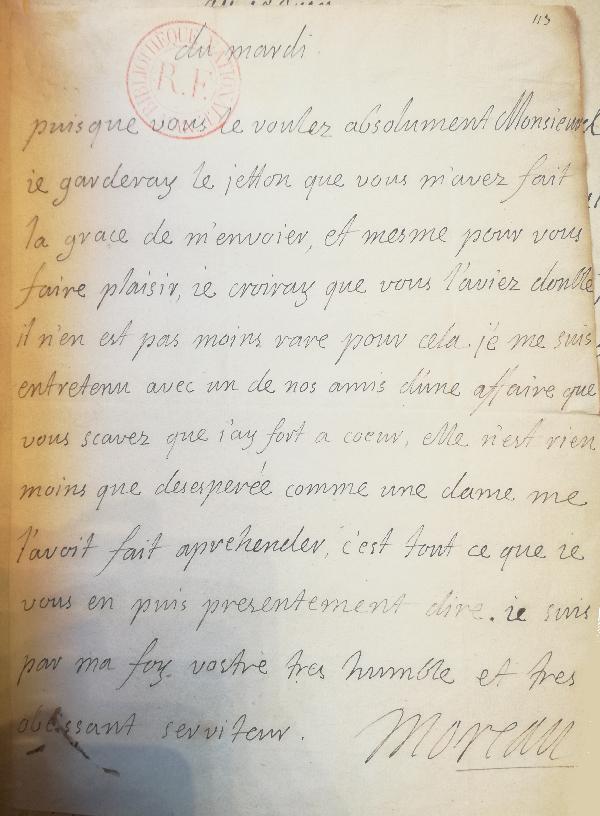 113
du mardi
BIBLIOTHEQUE NATIONALE
R.F.
puisque vous le voulez absolument Monsieur
ie garderay le jetton que vous m'avez fait
la grace de m'envoier, et mesme pour vous
faire plaisir, ie croiray que vous l'aviez double,
il n'en est pas moins rare pour cela. je me suis
entretenu avec un de nos amis d'une affaire que
vous scavez que i'ay fort a coeur, elle n'est rien
moins que desesperée comme une dame me
l'avoit fait aprehender, c'est tout ce que ie
vous en puis presentement dire. ie suis
par ma foy vostre tres humble et tres
obeissant serviteur.
Moreau